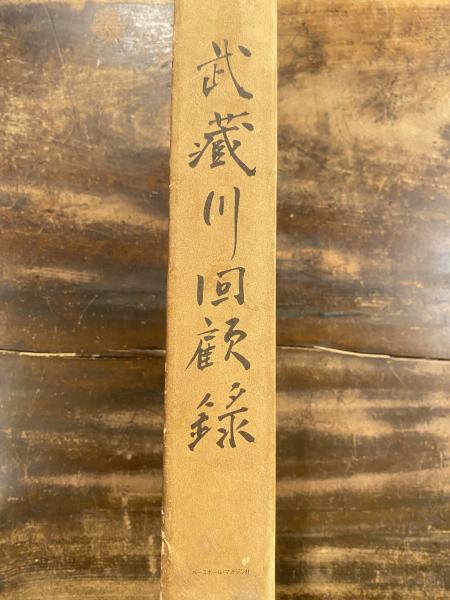 武藏川回顧錄
ベースボール・マガジン社